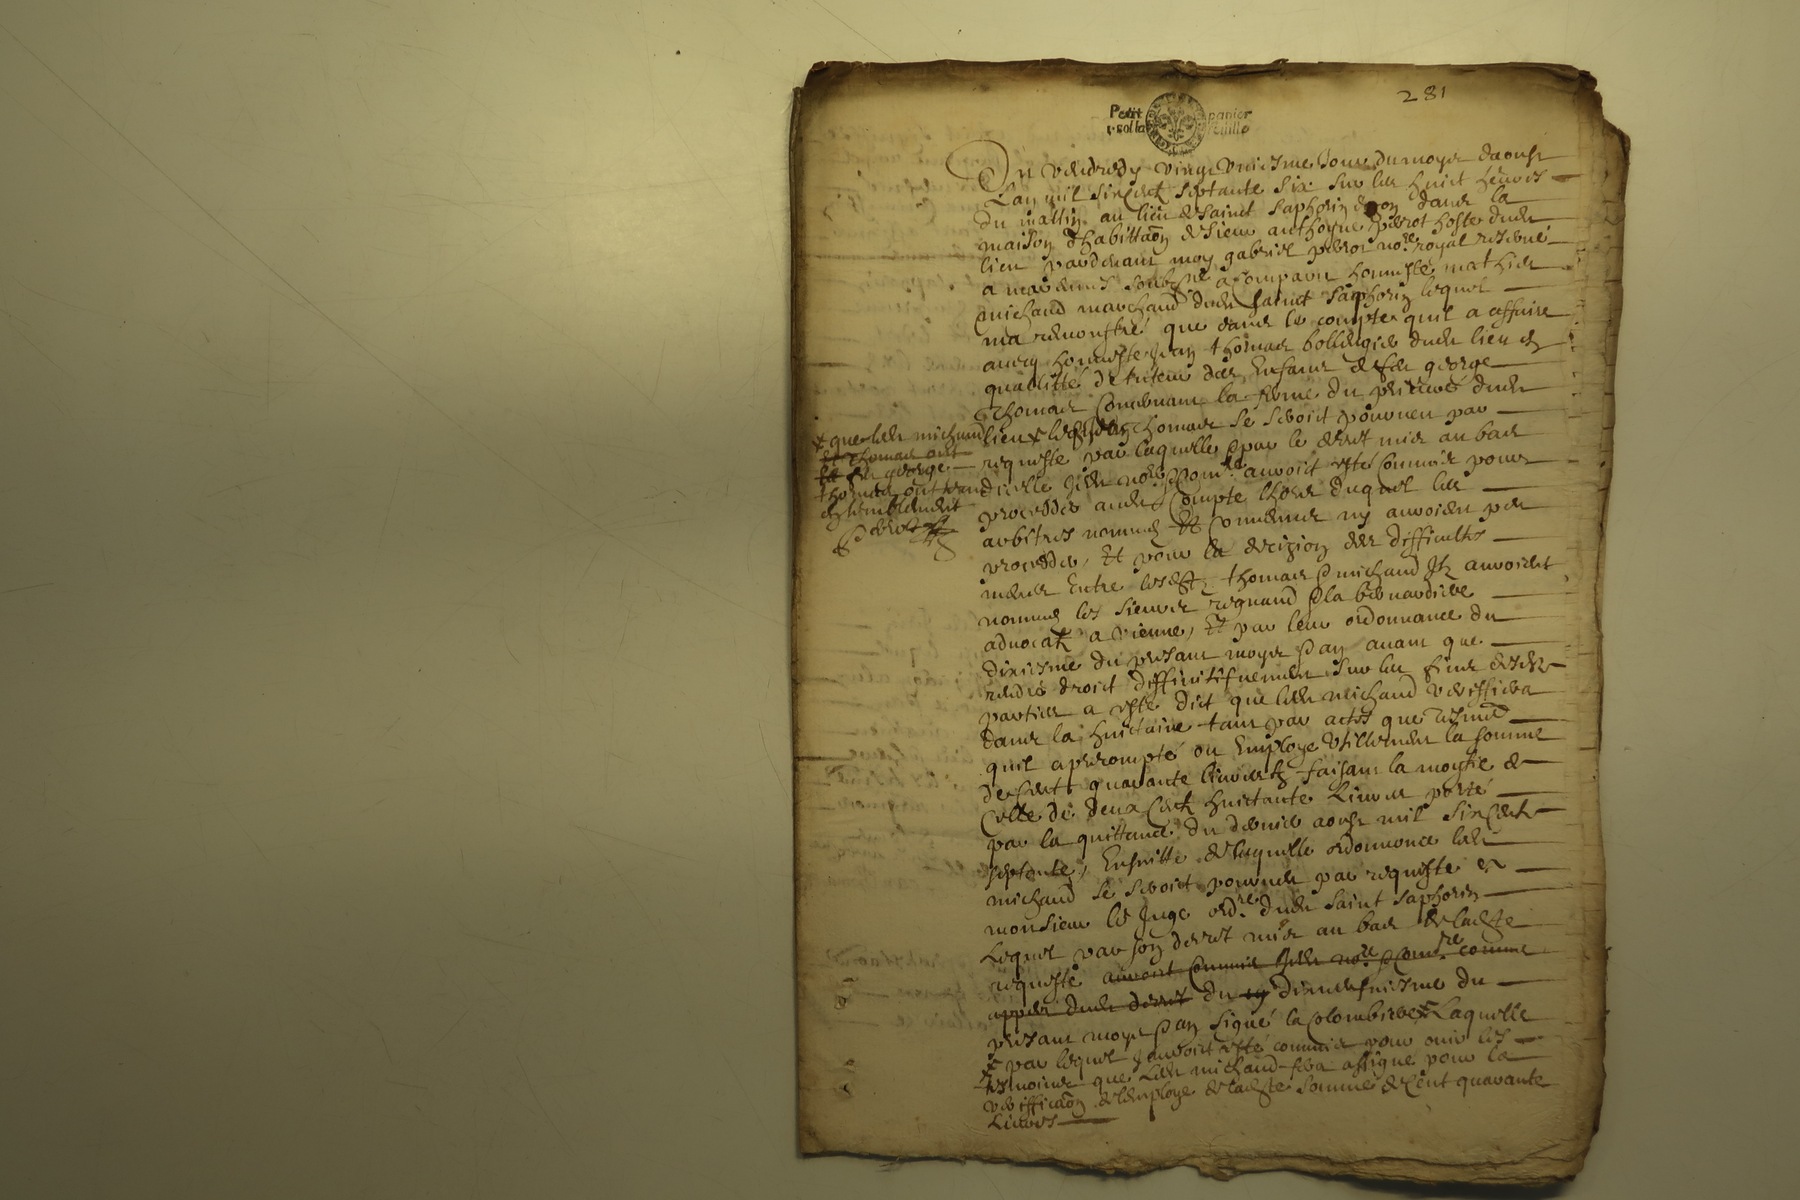 281
Petit papier
1 sol la feuille
Du vendredy vingt uniesme Jour du moys daoust
Lan mil six cent septante six sur les huict heures
du mattin au lieu de saint saphorin dozon dans la
maison dhabittaon de sieur anthoyne perrot hoste dudit
lieu pardevant moy gabriel perrot nore royal reservé
a mareennes soubzné a comparu honneste mathieu
michaud marchand dudit saint saphorin lequel
ma remonstré que dans le compte quil a affaire
avecq honneste Jean thomas bollengier dudit lieu en
quallitté de tuteur des Enfans de feu george
Thomas Concernant la ferme du prieuré dudit
lieu ledit thomas se seroit pourveu par
requeste par laquelle & par le decret mis au bas
dicelle Jedit nore & Comre auvoit esté Commis pour
proceder audit Compte lhors duquel les
arbitres nommés et Convenus ny auvoient peu
proceder, et pour la decizion des difficultes
meues Entre lesdits thomas & michaud Ilz auvoient
nommé les sieurs regnaud & la bernardiere
advocatz a vienne, et par leur ordonnance du
dixiesme du presant moys & an avant que
rendre droict diffinitifvement sur les fins desdites
parties a esté dict que ledit michaud veriffiera
dans la huictaine tant par actes que tesmoins
quil a precompté ou Employe utillement la somme
de Cent quarante livres faisant la moytie de
Celle de deux Cent huictante Livres porté
par la quittance du dernier aoust mil six Cent
septante, Ensuitte de laquelle ordonnance ledit
michaud se seroit pourveu par requeste a
monsieur le Juge ordre dudit saint saphorin
Lequel par son decret mis au bas de ladite
requeste auvoit Commis Jedit nore & Comre comme
appert dudit decret du 19 dixneufviesme du
presant moys & an signé la Colombiere Laquelle
par lequel Jauvoit esté commis pour ouir les
tesmoins que Ledit michaud fera assigné pour la
veriffication de lemploye de ladite somme de Cent quarante
Livres
que ledit michaud
et thomas ont
et feu george
thomas ont tenu
ensemblement
Perrot